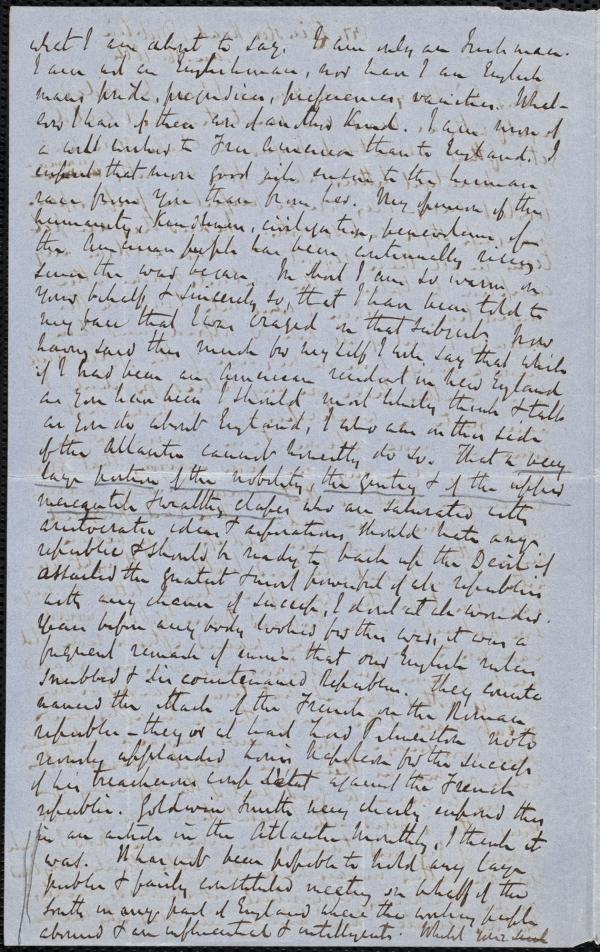 what I am about to say. I am only an Irishman.
I am not an Englishman, nor have I an English
mans pride, prejudices, preferences, vanities. What-
ever I have of these are of another kind. I am more of
a well wisher to Free America than to England. I
expect that more good will ensue to the human
race from you than from her. My opinion of the
humanity, kindliness, civilization, benevolence of
the American people has been continually rising
since the war began. In short I am so warm on
your behalf & sincerely so, that I have been told to
my face that I was crazed on that subject. Now
having said this much for myself I will say that while
if I had been an American resident in New England
as you have been I should most likely think & talk
as you do about England, I who am on this side
of the Atlantic cannot honestly do so. That a very
large portion of the nobility, the gentry & of the upper
mercantile & wealthy classes who are saturated with
aristocratic ideas & aspirations should hate any
republic & should be ready to back up the Devil if he
assailed the greatest & most powerful of all republics
with any chance of success, I dont at all wonder.
Years before any body looked for this war, it was a
frequent remark of mine that our English rulers
snubbed & discountenanced Republics. They counte
nanced the attack of the French on the Roman
republic – they or at least Lord Palmerston noto
riously applauded Louis Napoleon for the success
of his treacherous coup d'etat against the French
republic. Goldwin Smith very clearly exposed this
in an article in the Atlantic Monthly, I think it
was. It has not been possible to hold any large
public & fairly constituted meeting on behalf of the
South in any part of England where the working people
abound & are influential & intelligent. Whilst